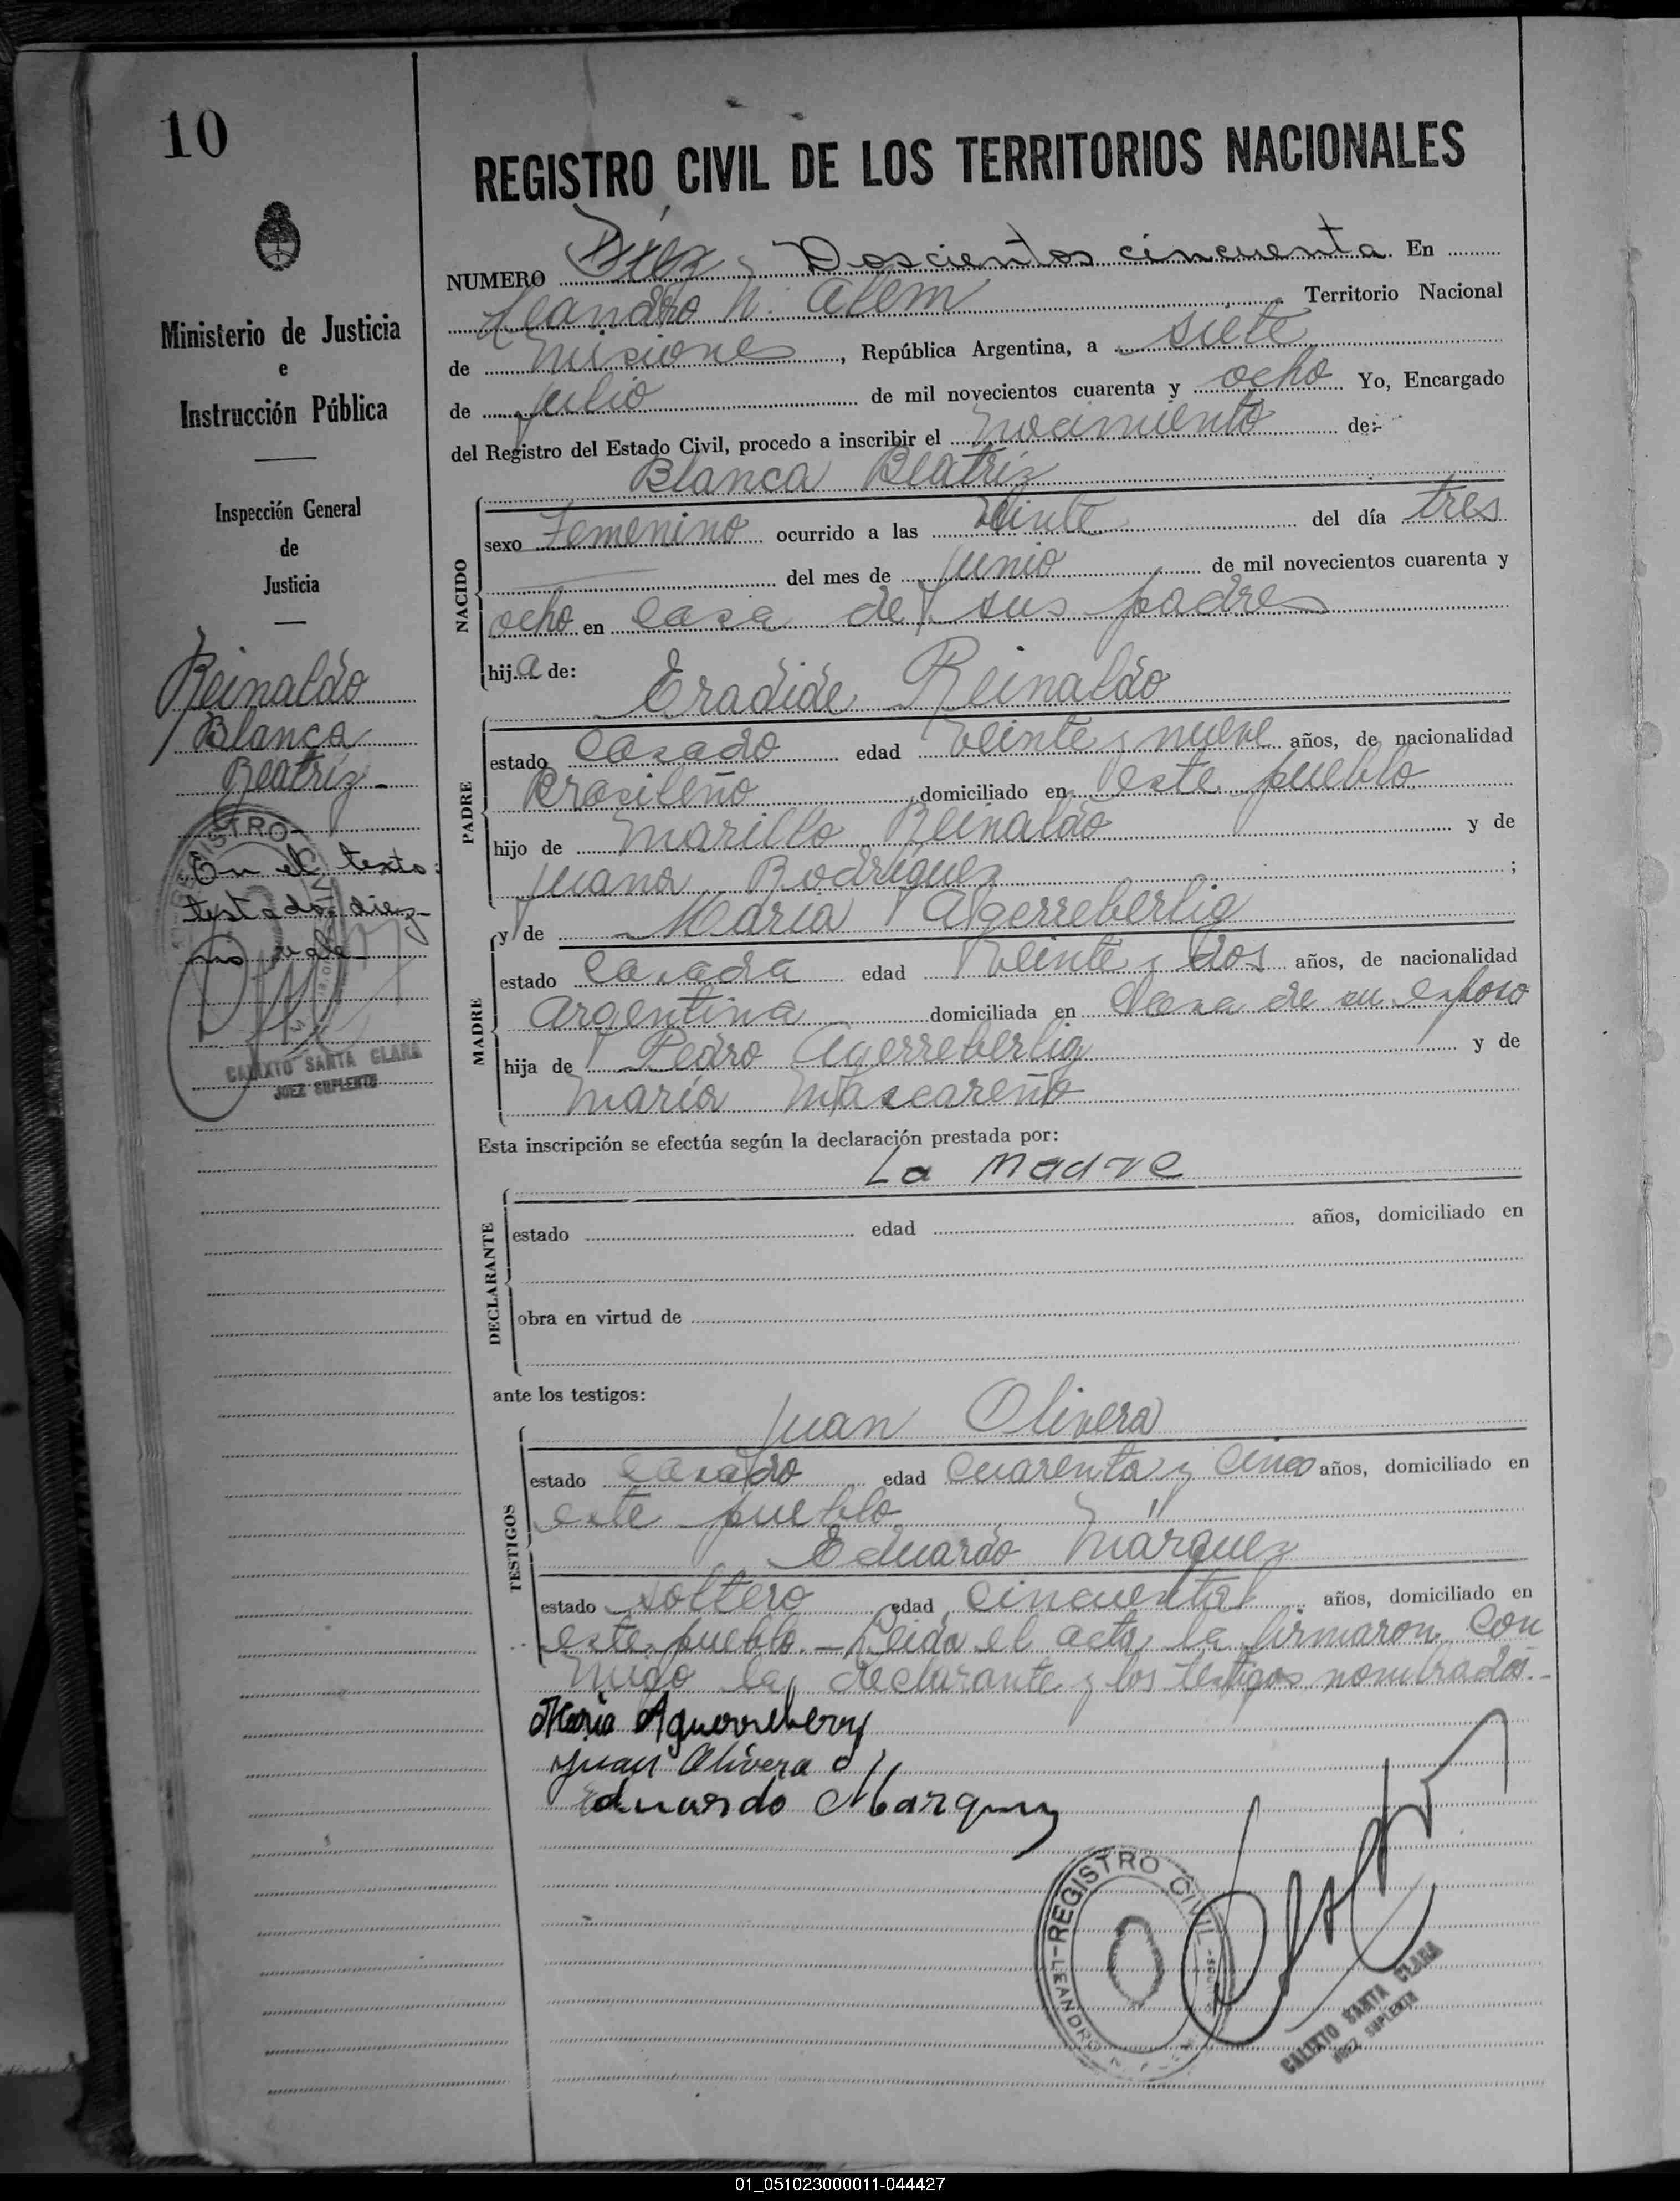 10
Ministerio de Justicia
e
Instrucción Pública
Inspección General
de
Justicia
Reinaldo
Blanca
Beatríz.-
En el texto:
testado: diez-
no vale
CALIXTO SANTA CLARA
JUEZ SUPLENTE
REGISTRO CIVIL DE LOS TERRITORIOS NACIONALES
NUMERO Diez Doscientos cincuenta. En
Leandro N. Alem Territorio Nacional
de Misiones, República Argentina, a siete
de julio de mil novecientos cuarenta y ocho Yo, Encargado
del Registro del Estado Civil, procedo a inscribir el Nacimiento de:-
Blanca Beatríz
NACIDO
sexo Femenino ocurrido a las Veinte del día tres
del mes de junio de mil novecientos cuarenta y
ocho en casa de sus padres
hija de:
Eradide Reinaldo
PADRE
estado Casado edad Veinte y nueve años, de nacionalidad
Brasileño domiciliado en este pueblo
hijo de Marillo Reinaldo y de
Juana Rodríguez ;
y de María Agerreberlig
MADRE
estado Casada edad Veinte y dos años, de nacionalidad
Argentina domiciliada en casa de su esposo
hija de Pedro Agerreberlig y de
María Mascareño
Esta inscripción se efectúa según la declaración prestada por:
La Madre
DECLARANTE
estado edad años, domiciliado en
obra en virtud de
ante los testigos:
TESTIGOS
Juan Olivera
estado Casado edad Cuarenta y Cinco años, domiciliado en
este pueblo
Eduardo Márquez
estado soltero edad cincuenta años, domiciliado en
este pueblo.- Leida el acta, la firmaron con
migo la declarante y los testigos nombrados.-
Maria Aguerreberry
Juan Olivera
Eduardo Marquez
REGISTRO CIVIL
LEANDRO N.
CALIXTO SANTA CLARA
JUEZ SUPLENTE
01_051023000011-044427